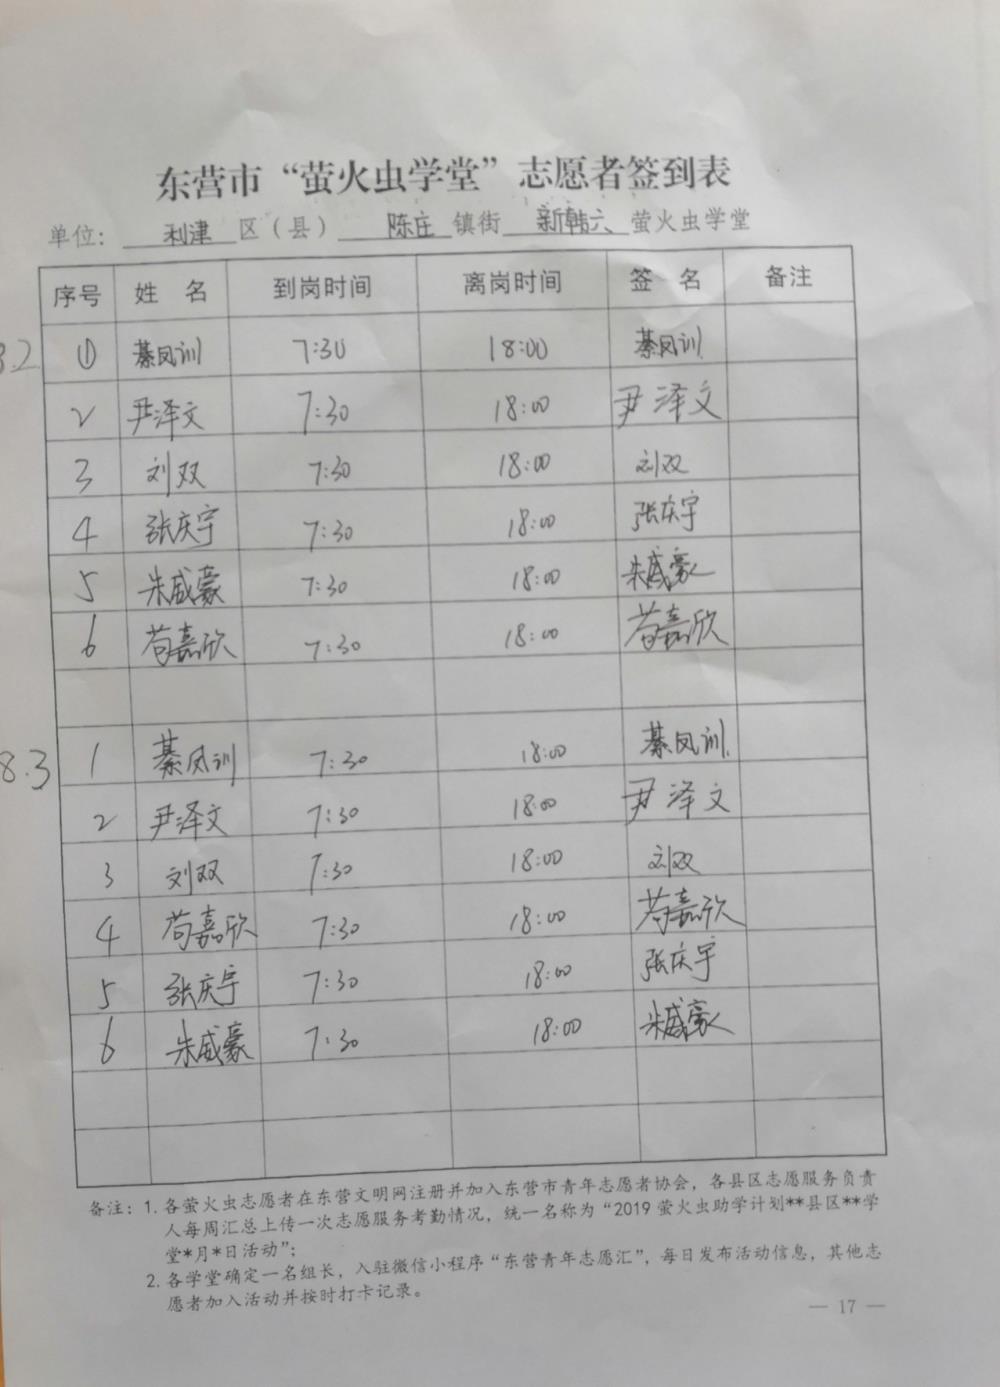 东营市“萤火虫学堂”志愿者签到表
单位： 利津 区（县） 陈庄 镇街 新韩六 萤火虫学堂
序号 姓 名 到岗时间 离岗时间 签 名 备注
8.2 ① 綦凤训 7:30 18:00 綦凤训
2 尹泽文 7:30 18:00 尹泽文
3 刘双 7:30 18:00 刘双
4 张庆宇 7:30 18:00 张庆宇
5 朱威豪 7:30 18:00 朱威豪
6 苟嘉欣 7:30 18:00 苟嘉欣
8.3 1 綦凤训 7:30 18:00 綦凤训
2 尹泽文 7:30 18:00 尹泽文
3 刘双 7:30 18:00 刘双
4 苟嘉欣 7:30 18:00 苟嘉欣
5 张庆宇 7:30 18:00 张庆宇
6 朱威豪 7:30 18:00 朱威豪
备注：1. 各萤火虫志愿者在东营文明网注册并加入东营市青年志愿者协会，各县区志愿服务负责
人每周汇总上传一次志愿服务考勤情况，统一名称为“2019 萤火虫助学计划**县区**学
堂*月*日活动”；
2. 各学堂确定一名组长，入驻微信小程序“东营青年志愿汇”，每日发布活动信息，其他志
愿者加入活动并按时打卡记录。
— 17 —